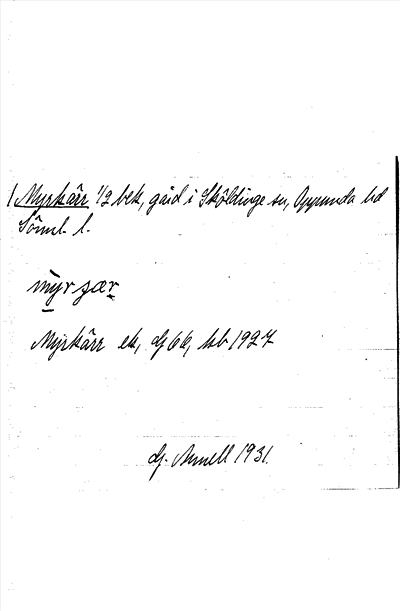 Myrkärr 1/2 bek, gård i Sköldinge sn, Oppunda hd
Söml. l.
Myrkärr ek, dj 66, hb 1927
dj. Annell 1931.